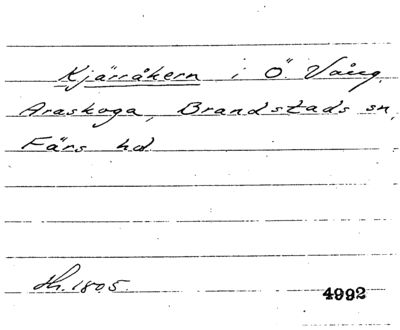 Kjärråkern i Ö. Vång,
Araskoga, Brandstads sn,
Färs hd
Sk. 1805.
4992